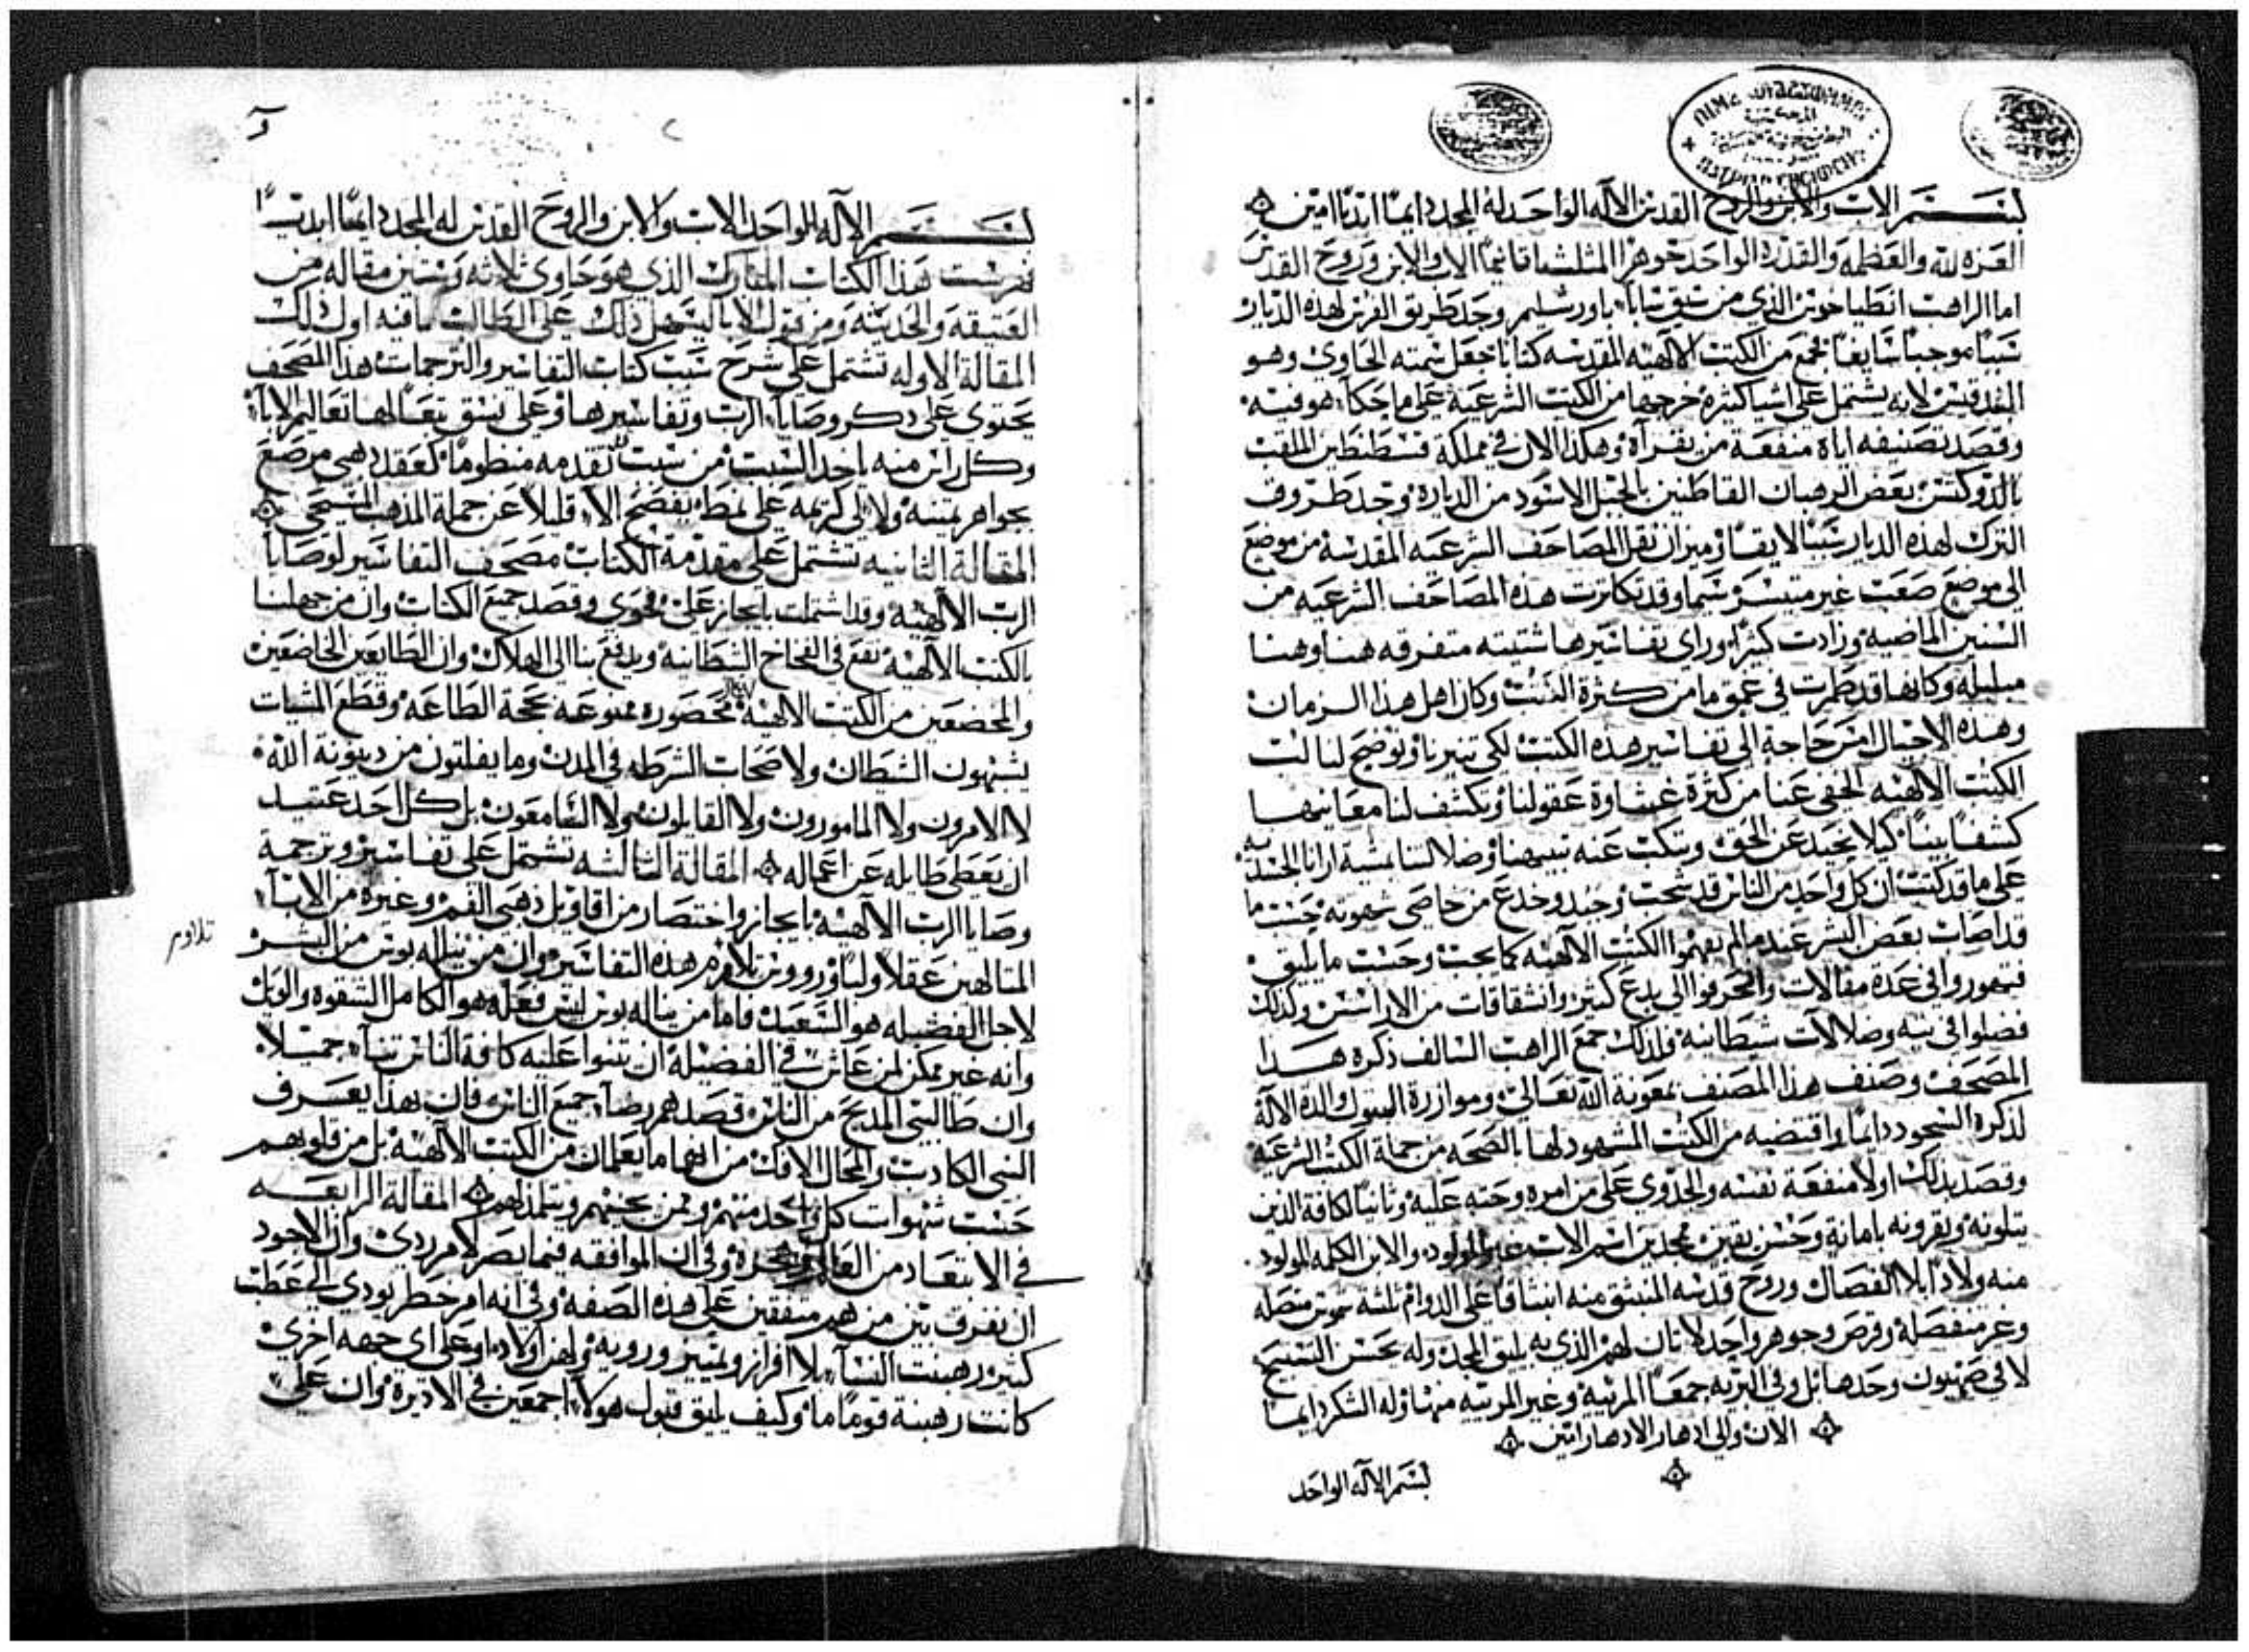 بسم الاب والابن والروح القدس الاله الواحد له المجد دايمًا ابديًا امين
العزه لله والعظمه والقدرة الواحد جوهرًا المثلث اقانيمًا الاب والابن وروح القدس
اما الراهب انطياخوس الذي من سيق سابا باورشليم وجد طريق الفرس لهذه الديار
سببًا موجبًا شايعًا فجمع من الكتب الالهيه المقدسه كتابًا جعل سمته الحاوي وهو
البندقتس لانه يشتمل على اشيا كثيرة خرجها من الكتب الشرعية على ما حكاه هو فيه
وقصد تصنيفه اياه منفعة من يقراه وهكذا الان في مملكة قسطنطين الملقب
بالدوكتس بعض الرهبان القاطنين بالجبل الاسود من الديارة وجد طروق
الترك لهذه الديار سببًا لايقًا وميز ان نقل المصاحف الشرعيه المقدسة من موضع
الى موضع صعب غير متيسر سيما وقد تكاثرت هذه المصاحف الشرعيه من
السنين الماضية وزادت كثيرًا وراى تفاسيرها شتيته متفرقه هنا وهنا
مبلبله وكانها قد طمرت في عمق ما من كثرة الكتب وكان اهل هذا الزمان
وهذه الاجيال امس حاجة الى تفاسير هذه الكتب لكي تنيرنا وتوضح لنا لب
الكتب الالهيه الخفي عنا من كثرة غشاوة عقولنا وتكشف لنا معانيها
كشفًا بينًا كيلا يحيد عن الحق وتنكب عنه بتيهنا وضلالتنا بمشية ارانا الجسديه
على ما قد كتب ان كل واحد من الناس قد سحب وجبد وخدع من خاصي شهوته حسب ما
قد اصاب بعض البشر عندما لم يفهموا الكتب الالهيه كما يجب وحسب ما يليق
فتهوروا في عدة مقالات وانحرفوا الى بدع كثير وانشقاقات من الاراسس وكذلك
فضلوا في تيه وضلالات شيطانية ولذلك جمع الراهب السالف ذكره هذا
المصحف وصنف هذا المصنف بمعونة الله تعالى وموازرة البتول والدة الاله
لذكره السجود دايمًا واقتضبه من الكتب المشهود لها بالصحه من جملة الكتب الشرعية
وقصد بذلك اولا منفعة نفسه والجدوى على من امره وحته عليه وثانيًا لكافة الذين
يتلونه ويقرونه بامانة وحسن يقين ممجدين اسم الاب غير المولود والابن الكلمه المولود
منه ولادا بلا انفصال وروح قدسه المنبثق منه انبثاقا على الدوام ثلثة شموس متصله
وغير منفصلة وقرص وجوهر واحد لا ثان لهم الذي به يليق المجد وله يحسن التسبيح
لا في صهيون وحدها بل وفي البريه جمعًا المرئية وغير المرئيه منها وله الشكر دايما
الان والى ادهار الادهار امين
بسم الاله الواحد
بسم الاله الواحد الاب والابن والروح القدس له المجد دايمًا ابديًا
فهرست هذا الكتاب المبارك الذي هو حاوي ثلاثه وستين مقاله من
العتيقه والحديثه ومن قول الابا ليسهل ذلك على الطالب ما فيه اول ذلك
المقالة الاوله تشتمل على شرح سبب كتاب التفاسير والترجمات هذا المصحف
يحتوي على ذكر وصايا الرب وتفاسيرها وعلى نسق تبعًا لها تعاليم الابا
وكل راس منه ياخد السبب من سبب تقدمه منظومًا كعقد ذهبي مرصع
بجواهر ثمينه ولالي كريمه على نمط يفضح الا قليلا عن جملة المذهب المسيحي
المقالة الثانيه تشتمل على مقدمة الكتاب مصحف التفاسير لوصايا
الرب الالهيه وقد اشتملت بايجاز على فحوى وقصد جميع الكتاب وان من جهلنا
بالكتب الالهيه نقع في الفخاخ الشيطانيه ويدفع بنا الى الهلاك وان الطايعين الخاضعين
والمخضعين من الكتب الالهيه محصوره ممنوعه بحجة الطاعه وقطع المشيات
يشبهون الشيطان ولاصحاب الشرطه في المدن وما يفلتون من دينونة الله
لا الامرون ولا المامورون ولا القايلون ولا السامعون بل كل احد عتيد
ان يعطى طايله عن اعماله المقالة الثالثه تشتمل على تفاسير وترجمة
وصايا الرب الالهية بايجاز واختصار من اقاويل ذهبي الفم وغيره من الابا
المتالهين عقلا ولبًا ورووس تلاوم هذه التفاسير وان من يناله بوس من البشر
تلاوم
لاجل الفضيله هو السعيد فاما من يناله بوس ليس فعله هو الكامل الشقوة والويل
وانه غير ممكن لمن عاش في الفضيلة ان يثنوا عليه كافة الناس ثناء جميلا
وان طالبي المديح من الناس قصدهم رضا جميع الناس فان بهذا يعرف
النبي الكادب والمحال الافك من انهما ما يعلمان من الكتب الالهيه بل من قلوبهم
حسب شهوات كل واحد منهم ولمن يحبهم ويتلمذ لهم المقالة الرابعه
في الابتعاد من العالم وفي ان الموافقه فيما يضر لامر ردي وان الاجود
ان نفرق بين من هم متفقين على هذه الصفه وفي انه امر خطر يودي الى عطب
كبير رهبنت النسا بلا افراز وتمييز ورويه ولهن اولاد او على اي جهه اخرى
كانت رهبنة قومًا ما وكيف يليق قبول هولاء اجمعين في الاديرة وان على